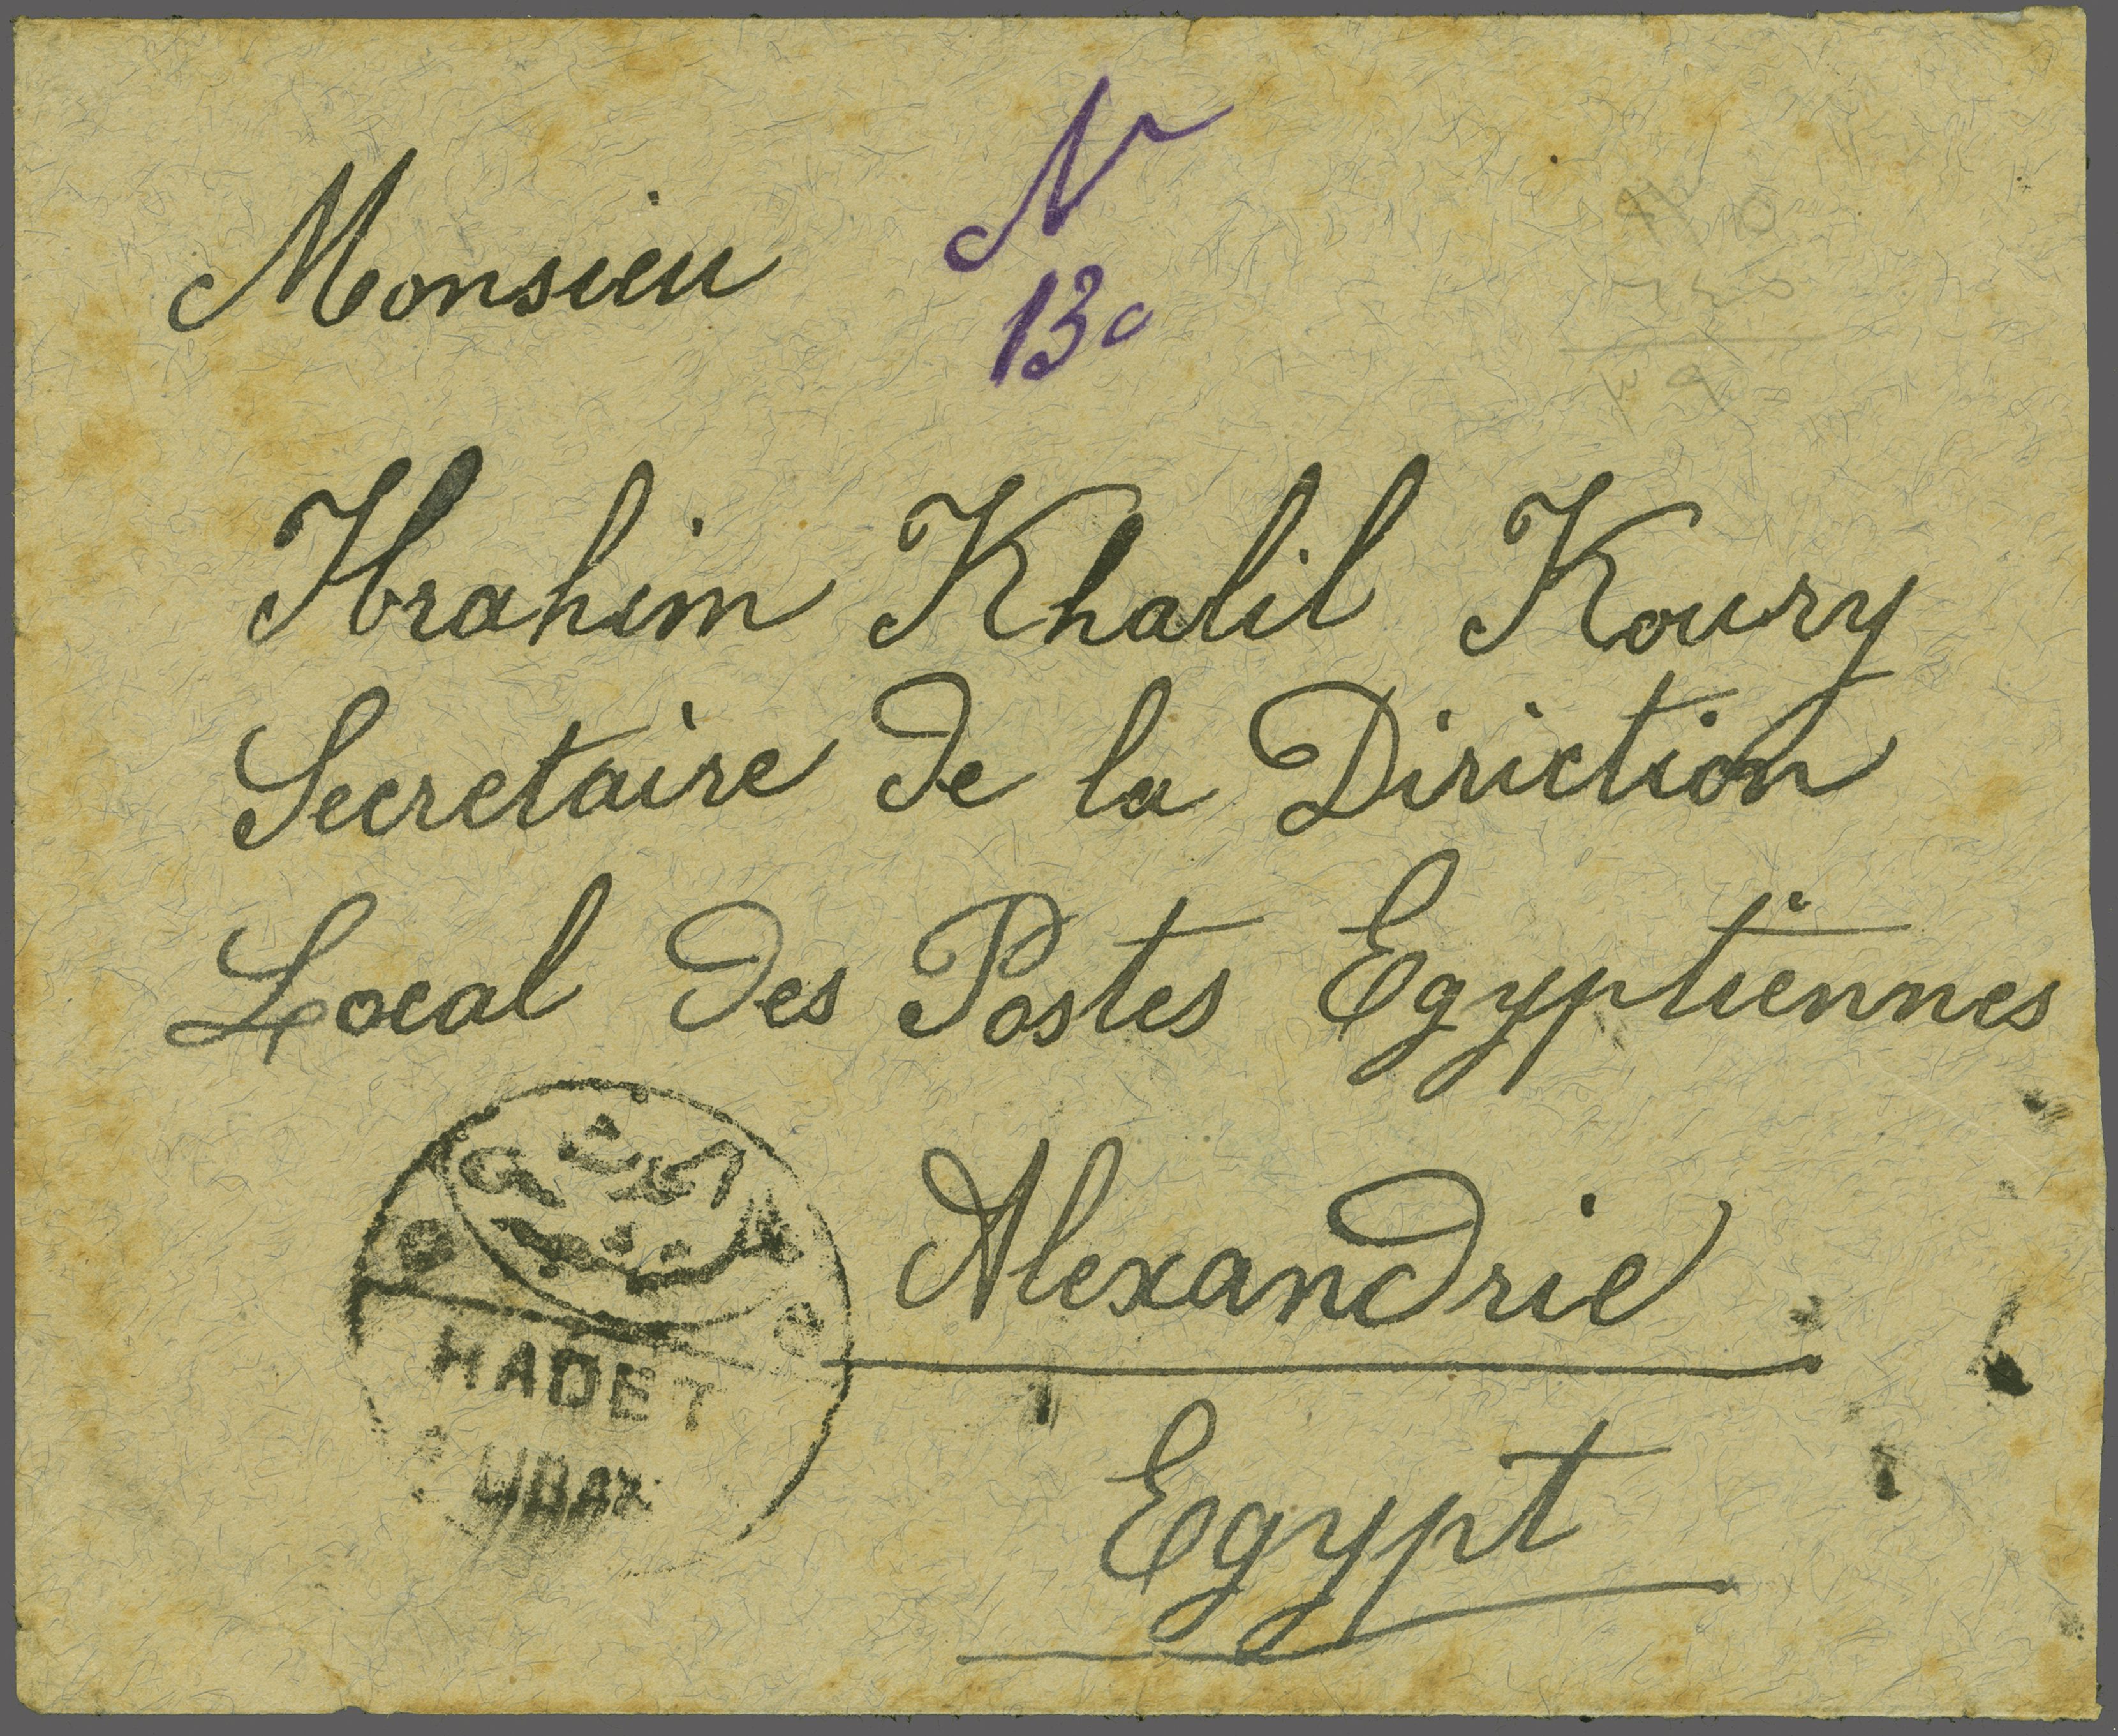 N
130
Monsieu
Ibrahim Khalil Koury
Secretaire de la Diriction
Local des Postes Egyptiennes
Alexandrie
Egypt
HADET